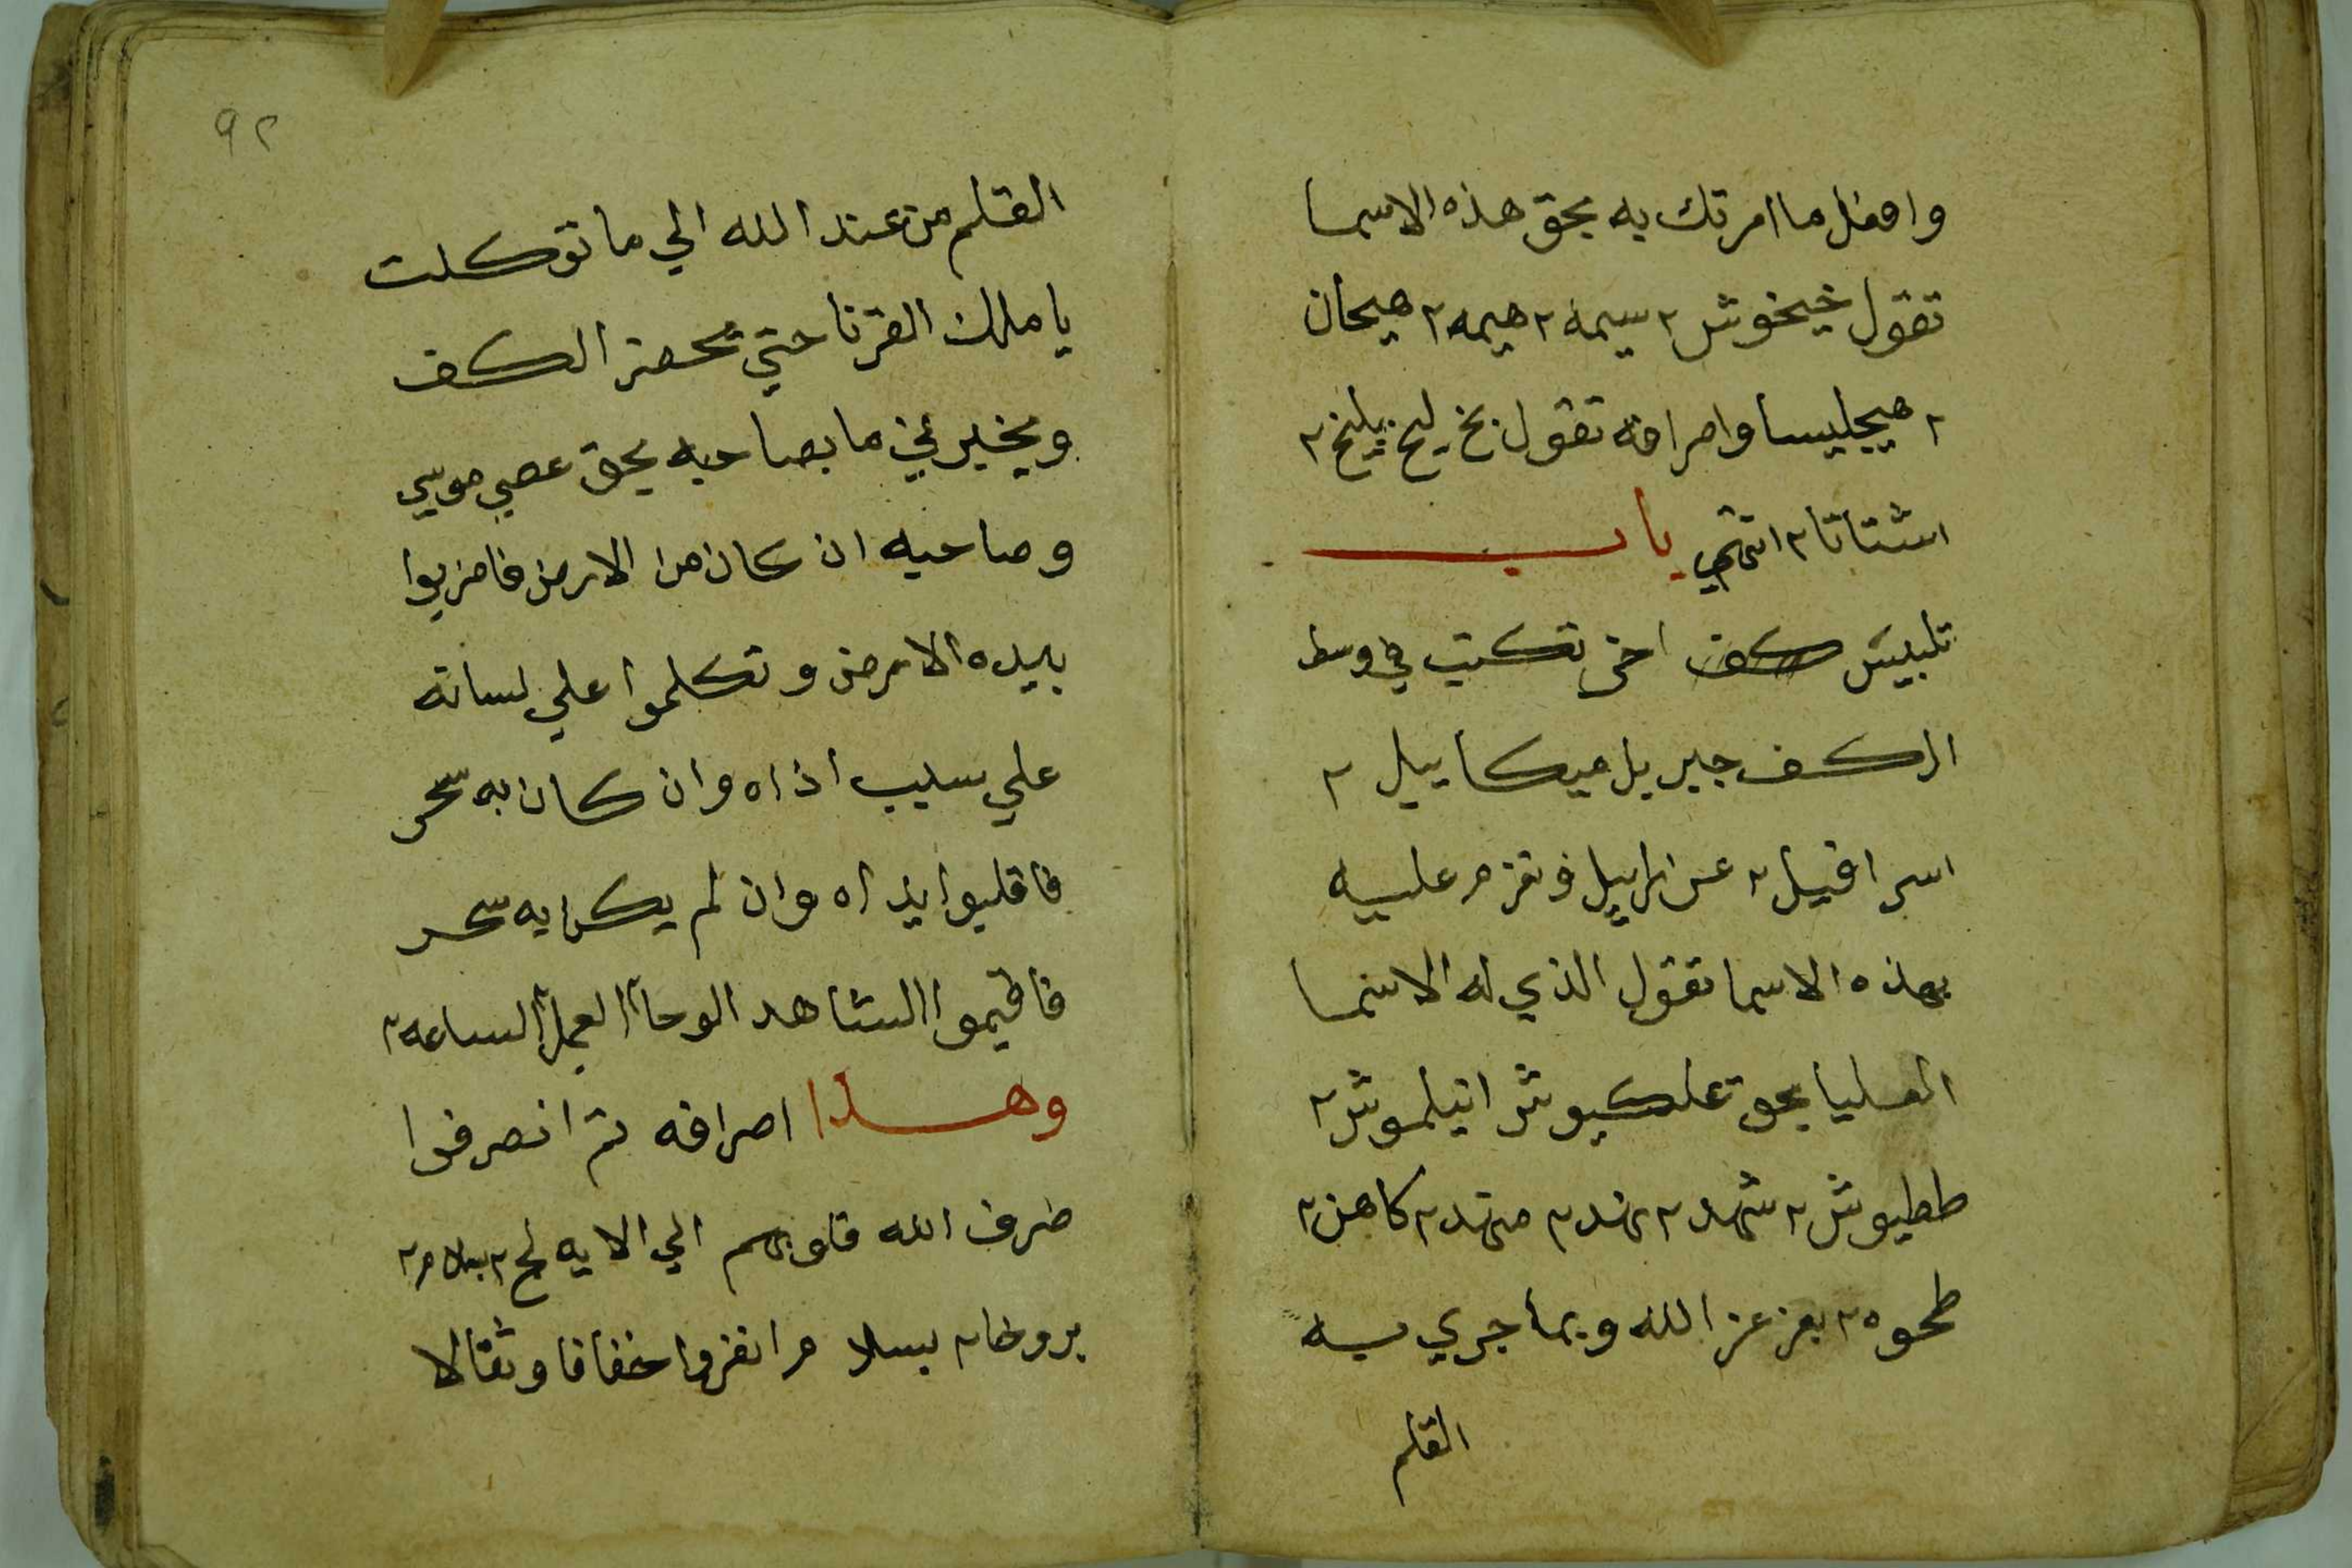 وافعل ما امرتك به بحق هذه الاسما
تقول خيخوش ٢ سيمه ٢ هيمه ٢ هيحان
٢ هيجليسا وامرافه تقول بخ ليخ بيليخ ٢
اشتاتا ٢ انتهي باب
تلبيس كف اخر تكتب في وسط
الكف جبريل ميكاييل ٢
اسرافيل ٢ عزراييل وتعزم عليه
بهذه الاسما تقول الذي له الاسما
العليا بحق علكيوش اتيلموش ٢
ططيوش ٢ شهد ٢ نهد ٢ مهد ٢ كاهن ٢
طحوه ٢ بعز عز الله وبما جري به
القلم
٩٢
القلم من عند الله الي ما توكلت
يا ملك القرنا حتي تحضر الكف
ويخبرني ما بصاحبه بحق عصي موسي
وصاحبه ان كان من الارض فاضربوا
بيده الارض وتكلموا علي لسانه
علي سبب اذاه وان كان به سحر
فاقلبوا يداه وان لم يكن به سحر
فاقيموا الشاهد الوحا ٢ العجل ٢ الساعه ٢
وهذا اصرافه ثم انصرفوا
صرف الله قلوبهم الي الايه لخ ٢ بهلام ٢
بروخا ٢ بسلام انفروا خفافا وثقالا